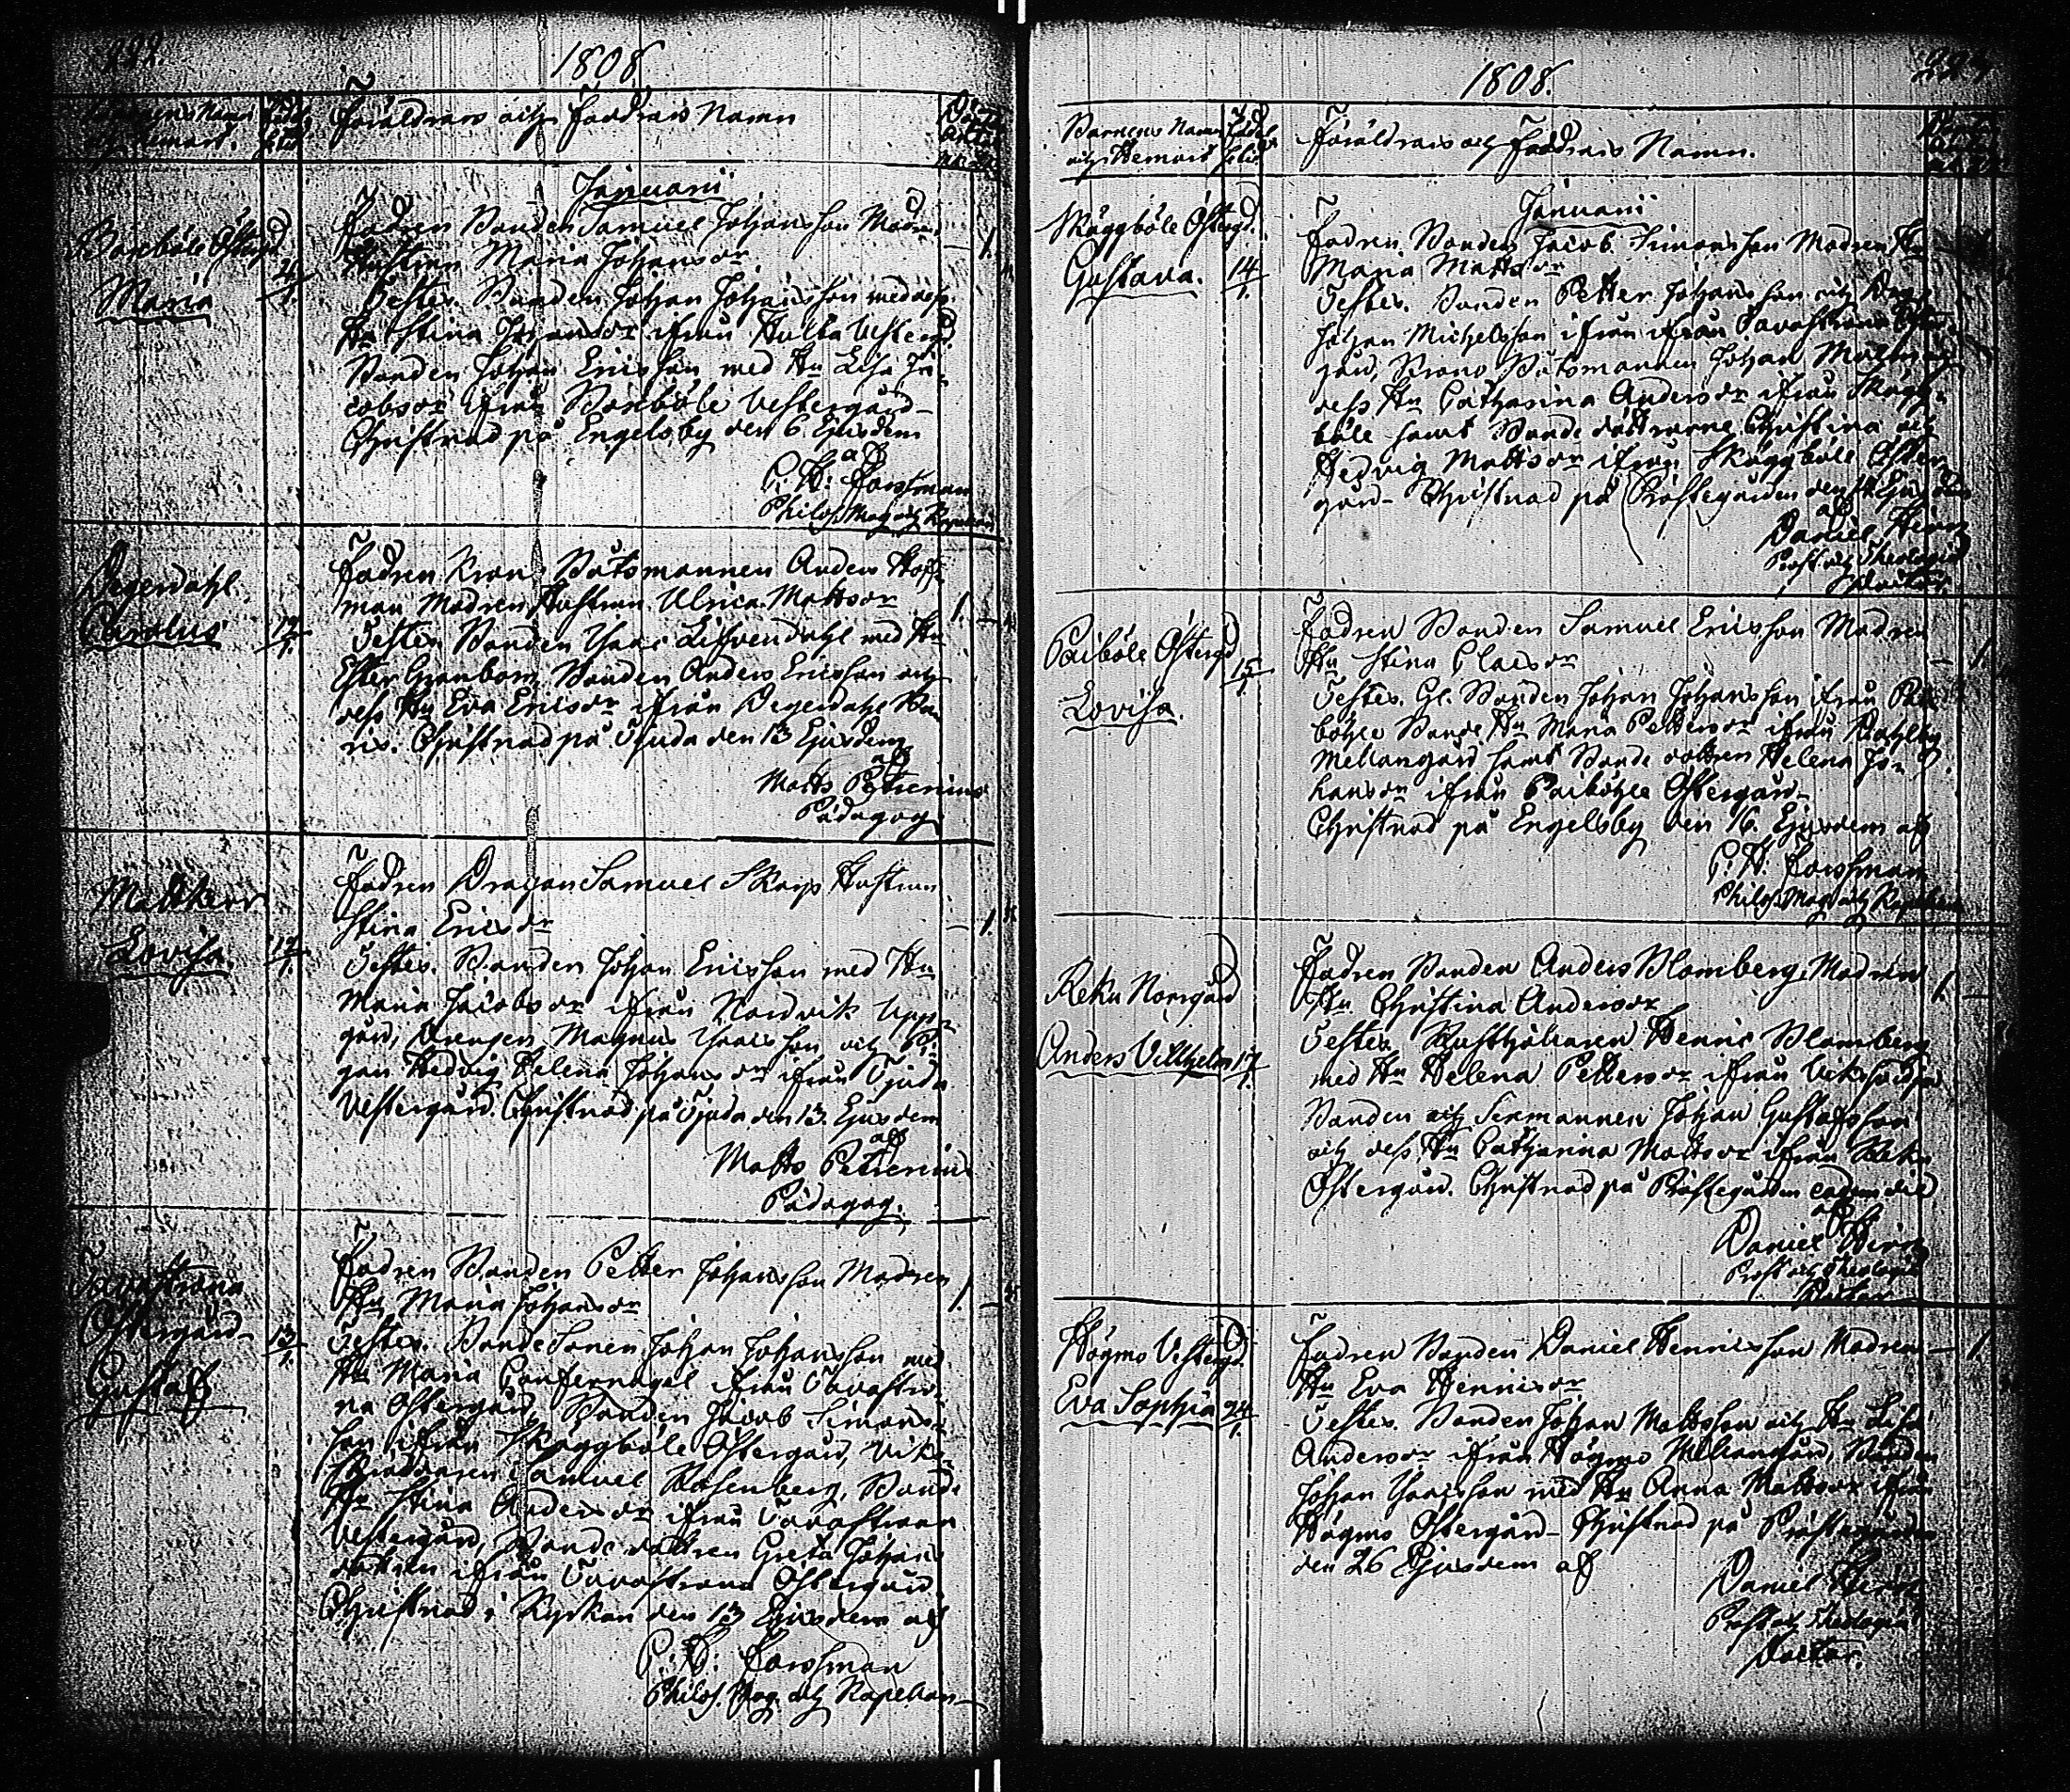 222.
1808
Barnens Namn Födel
och Hemort. setid
Föräldrars och Faddrars Namn
Januarii
Boxböle Östergd
Maria
4/1.
Fadren Bonden Samuel Johansson Modren
Hustrun Maria Johansdr
Testes. Bonden Johan Johansson med dess
Hu Stina Johansdr ifrån Hulta Vestergd
Bonden Johan Ericsson med Hu Lisa Ja-
cobsdr ifrån Boxböle Vestergård
Christnad på Engelsby den 6 Ejusdem
af
P. H: Forssman
Philos. Mag. och Kapellan
Degerdahl
Carolus
12/1.
Fadren Krono Båtsmannen Anders Hoff-
man Modren Hustrun Ulrica Mattsdr
1. —
Testes Bonden Isaac Liffvendahl med Hu
Ester Granbom, Bonden Anders Ericsson och
dess Hu Eva Ericsdr ifrån Degerdahl
Christnad på Tjuda den 13 Ejusdem
af
Matts Petrenius
Pädagog
Mattkerr
Lovisa.
12/1.
Fadren Dragon Samuel Skarp Hustrun
Stina Ericsdr
— 1
Testes. Bonden Johan Ericsson med Hu
Maria Jacobsdr ifrån Nordvik Upp-
gård, Drengen Magnus Isacsson och Pi-
gan Hedvig Helena Johansdr ifrån Tjuda
Vestergård. Christnad på Tjuda den 13. Ejusdem
af
Matts Petrenius
Pädagog.
Tavastrona
Östergård
Gustaf
13/1.
Fadren Bonden Petter Johansson Modren
Hu Maria Johansdr
1. —
Testes. Bonde Sonen Johan Johansson med
Hu Maria ifrån Tavastro-
na Östergård, Bonden Jacob Simons-
son ifrån Skäggböle Östergård,
Samuel Rosenberg, Bonde
Hu Stina Andersdr ifrån Tavastrona
Vestergård, Bonde dottren Greta Johans
dottren ifrån Tavastrona Östergård
Christnad i Kyrkan den 13 Ejusdem af
P: H: Forssman
Philos. Mag. och Kapellan
1808.
Barnens Namn Födel
och Hemort setid
Föräldrars och Faddrars Namn.
Januarii
Skäggböle Östergd.
Gustava.
14/1.
Fadren Bonden Jacob Simonsson Modren Hu
Maria Mattsdr
Testes. Bonden Petter Johansson och
Johan Michelsson ifrån ifrån Tavastrona Öster-
gård, Krono Båtsmannen Johan Malm och
dess Hu Catharina Andersdr ifrån Skägg-
böle samt Bonde döttrarne Christina och
Hedvig Mattsdr ifrån Skäggböle Öster-
gård. Christnad på Prästegården den Ejusdem
af
Daniel Hirn
Prost och Theologiæ
Doctor.
Paiböle Östergd
Lovisa.
15/1.
Fadren Bonden Samuel Ericsson Modren
Hu Stina Claesdr
— 1.
Testes. Gl. Bonden Johan Johansson ifrån Pai-
böhle Bonde Hu Maria Pettersdr ifrån Dahlby
Mellangård samt Bonde dottren Helena Jo-
hansdr ifrån Paiböhle Östergård
Christnad på Engelsby den 16. Ejusdem af
P. H: Forssman
Philos. Mag. och Kapellan
Reku Norrgård
Anders Vilhelm
17/1.
Fadren Bonden Anders Blomberg Modren
Hu. Christina Andersdr
1. —
Testes. Rusthållaren Henric Blomberg
med Hu Helena Pettersdr ifrån
Bonden och Sexmannen Johan Gustafsson
och dess Hu Catharina Mattsdr ifrån Reku
Östergård. Christnad på Prästegården eodem die
af
Daniel Hirn
Prost och Theologiæ
Doctor
Högmo Vestergd.
Eva Sophia
24/1.
Fadren Bonden Daniel Henricsson Modren
Hu Eva Henricsdr
— 1.
Testes. Bonden Johan Mattsson och Hu Lisa
Andersdr ifrån Högmo Mellangård, Bonden
Johan Isacsson med Hu Anna Mattsdr ifrån
Högmo Östergård. Christnad på Prästegården
den 26 Ejusdem af
Daniel Hirn
Prost och Theologiæ
Doctor.